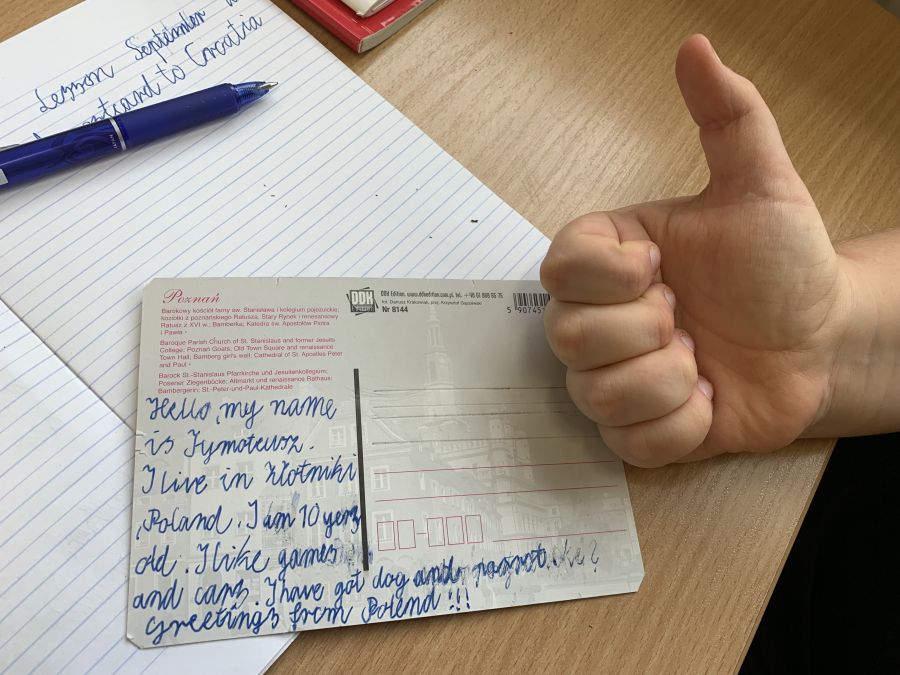 Lesson September
postcard to Croatia
Poznań
Barokowy kościół farny św. Stanisława i kolegium pojezuickie;
koziołki z poznańskiego Ratusza, Stary Rynek i renesansowy
Ratusz z XVI w.; Bamberka, Katedra św. Apostołów Piotra
i Pawła •
Baroque Parish Church of St. Stanislaus and former Jesuits
College; Poznań Goats; Old Town Square and renaissance
Town Hall, Bamberg girl's well; Cathedral of St. Apostles Peter
and Paul •
Barock St.-Stanislaus Pfarrkirche und Jesuitenkollegium;
Posener Ziegenböcke; Altmarkt und renaissance Rathaus;
Bambergerin; St.-Peter-und-Paul-Kathedrale
DDK
DDK Edition, www.ddkedition.com.pl, tel. + 48 61 868 66 75
fot. Dariusz Krakowiak, proj. Krzysztof Gąszewski
Nr 8144
5 907451
Hello, my name
is Tymoteusz.
I live in Złotniki
,Poland. I am 10 yerz
old. I like games
and carz. I have got dog and
greetings from Polend!!!